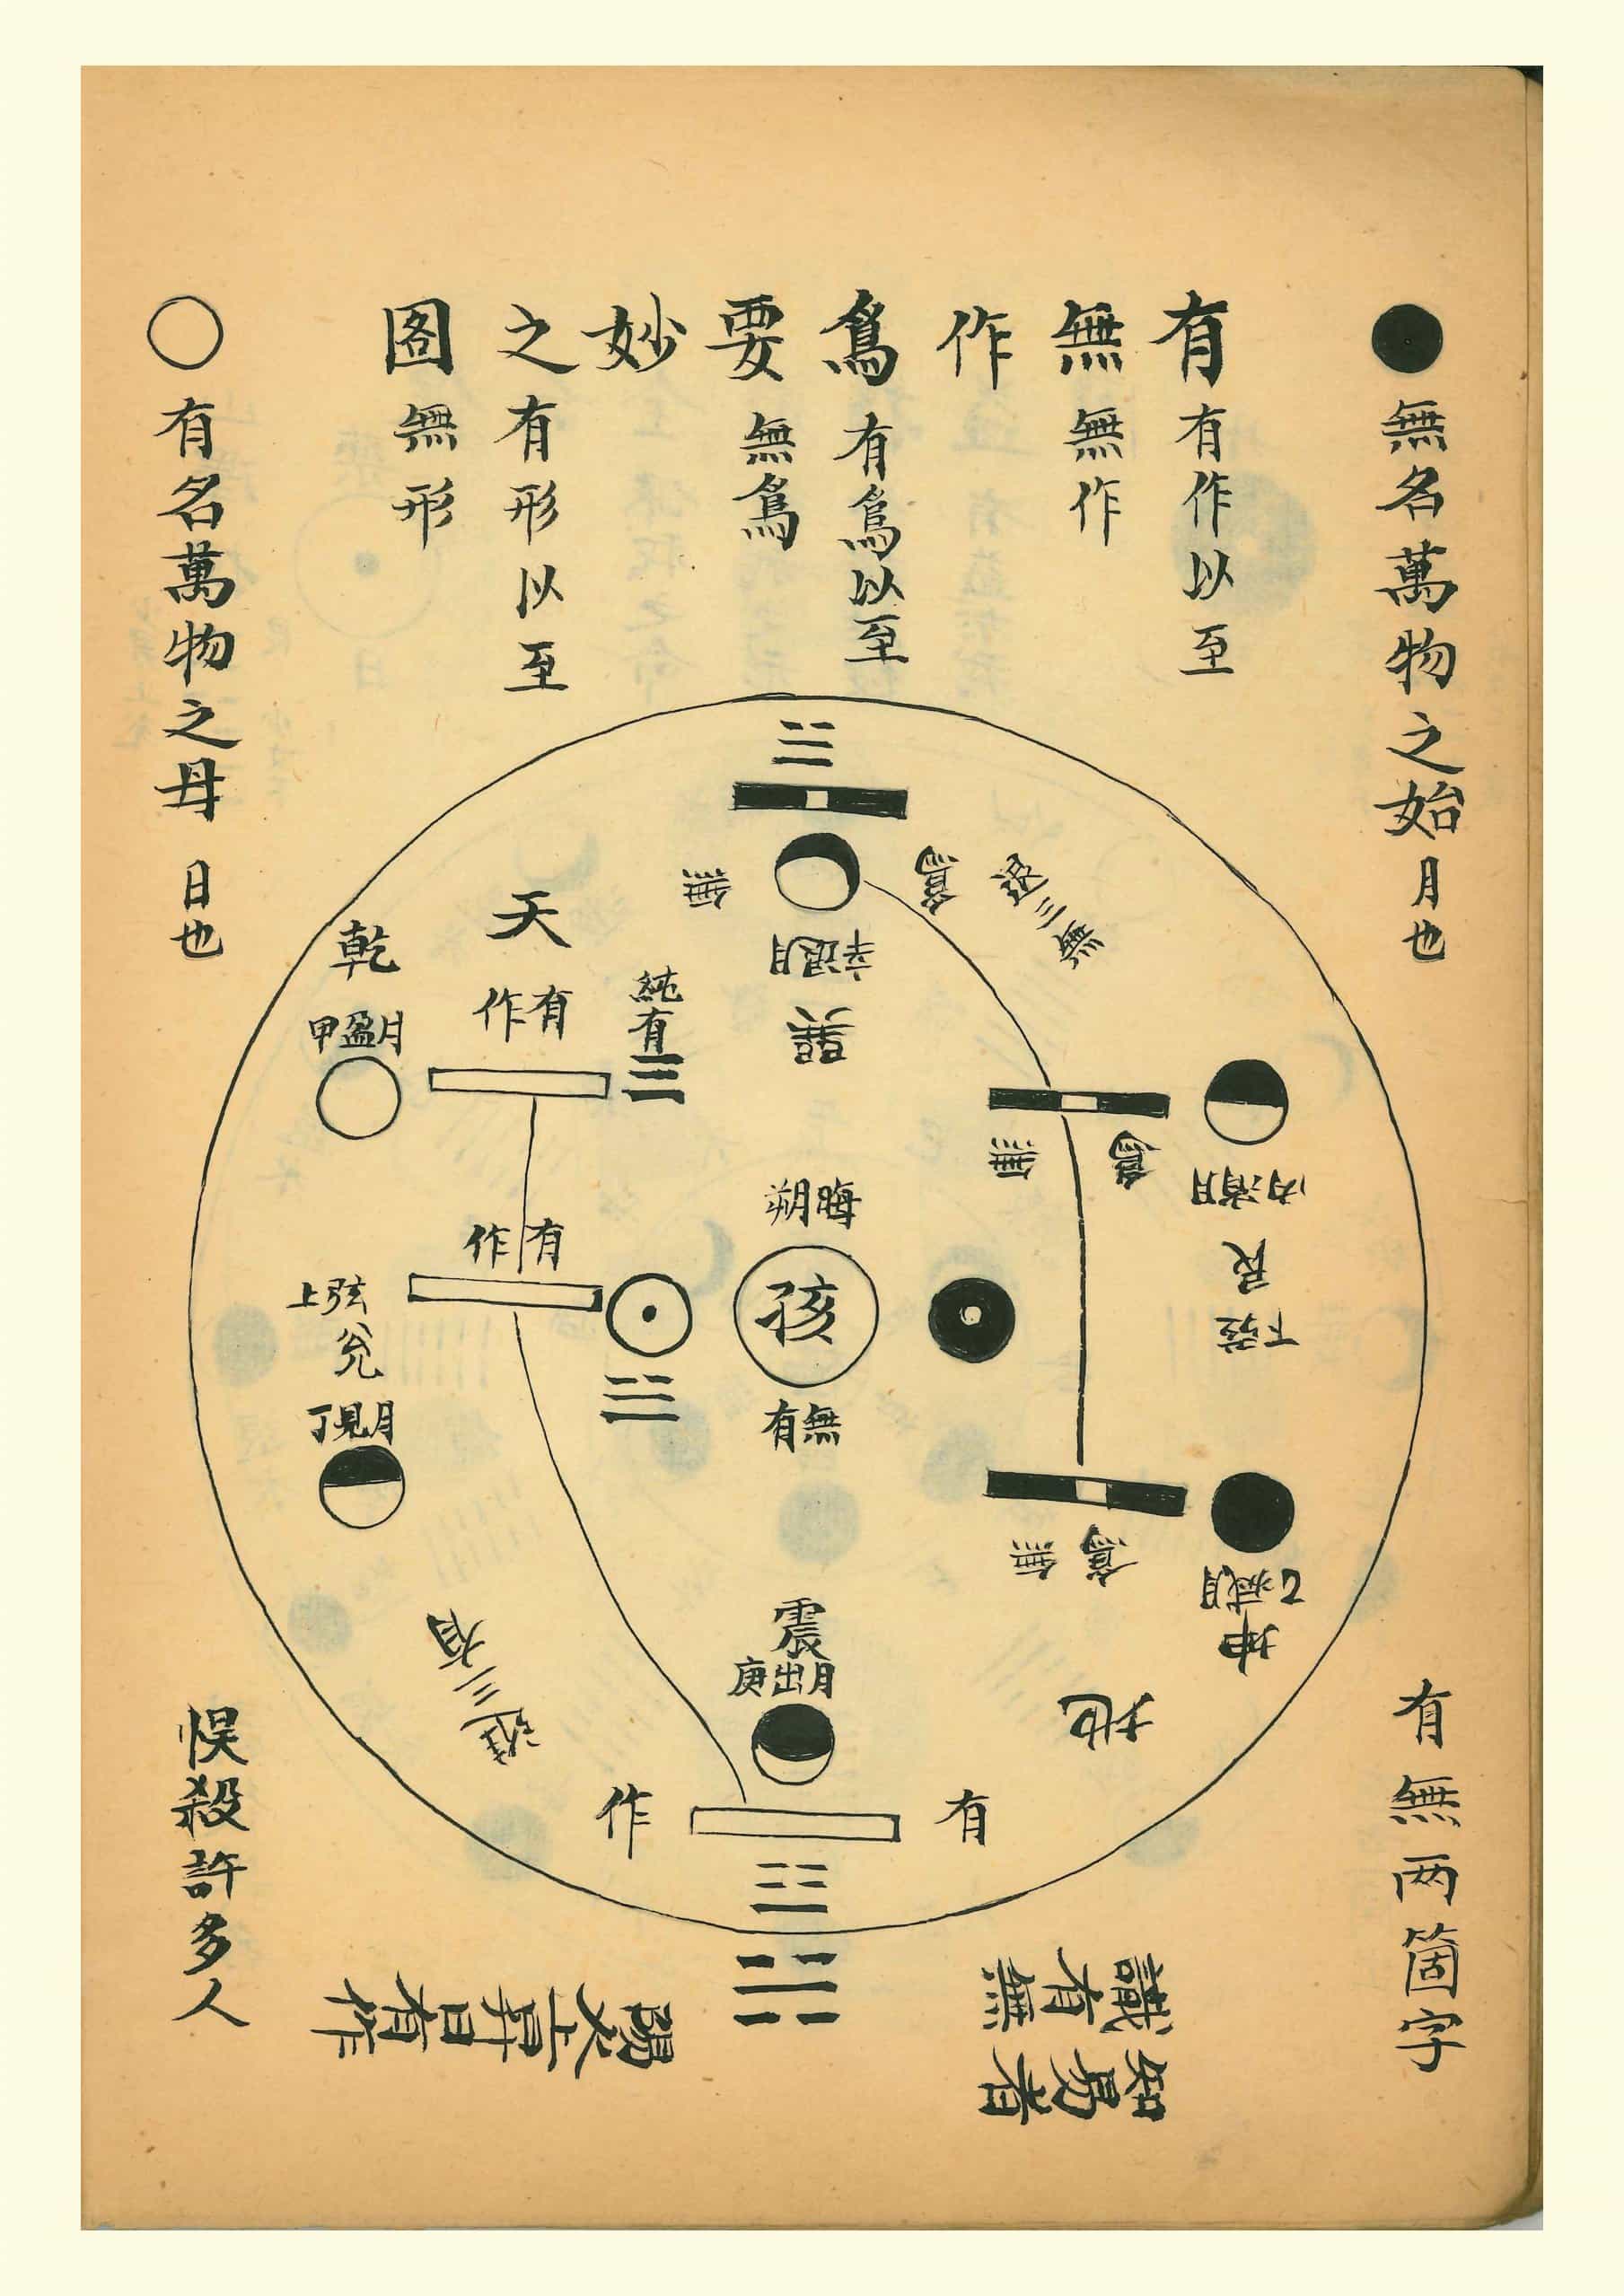 無名萬物之始月也
有無作爲要妙之圖
有作以至
無作
有爲以至
無爲
有形以至
無形
有名萬物之母 日也
無
爲
退三無
辛退月
巽
天
有作
純有
乾
甲盈月
無爲
丙消月
艮
下弦
晦朔
孩
無有
有作
上弦
兌
丁見月
無爲
乙滅月
坤
地
震
庚出月
進三有
有
作
有無两箇字
悮殺許多人
知易者
識有無